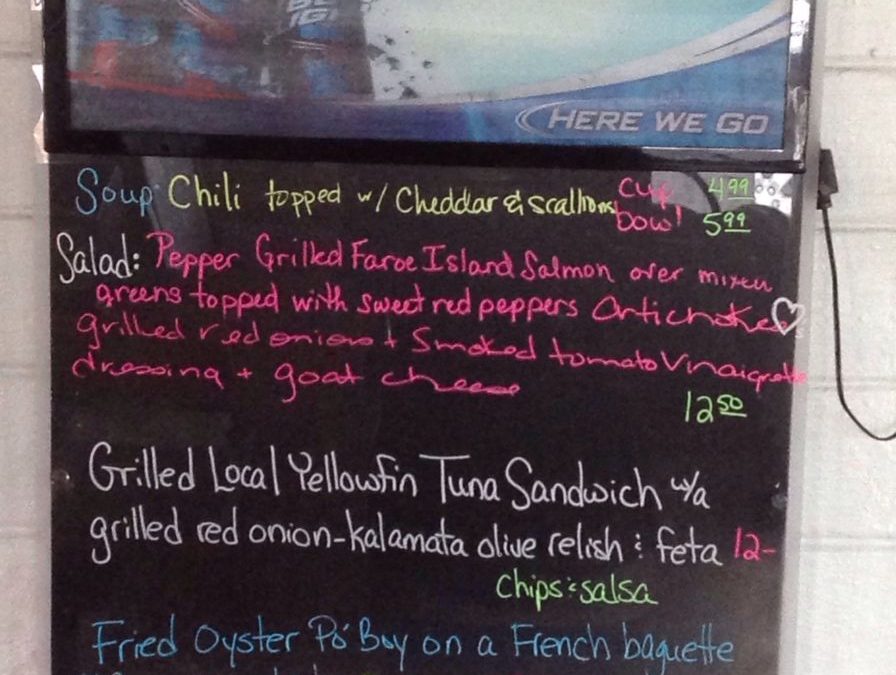 HERE WE GO
Soup Chili topped w/ Cheddar & scallions cup 4.99
bowl 5.99
Salad: Pepper Grilled Faroe Island Salmon over mixed
greens topped with sweet red peppers Artichokes
grilled red onions + Smoked tomato Vinaigrette
dressing + goat cheese
12 50
Grilled Local Yellowfin Tuna Sandwich w/a
grilled red onion-kalamata olive relish & feta 12-
Chips & salsa
Fried Oyster Po' Boy on a French baguette